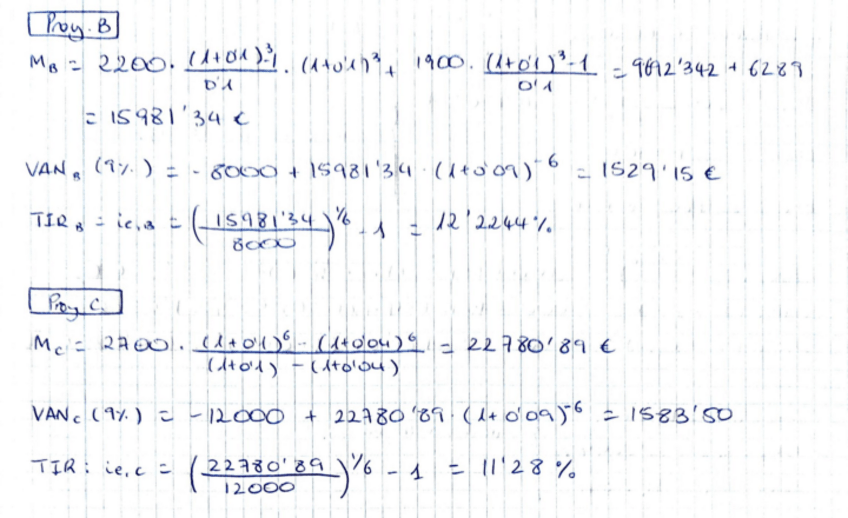 Proy. B
M_B = 2200 · ((1+0'1)^3-1)/0'1 · (1+0'1)^3 + 1900 · ((1+0'1)^3-1)/0'1 = 9692'342 + 6289
= 15981'34 €
VAN_B (9%) = -8000 + 15981'34 · (1+0'09)^-6 = 1529'15 €
TIR_B = ie,B = (15981'34/8000)^1/6 - 1 = 12'2244%
Proy C.
M_C = 2700 · ((1+0'1)^6 - (1+0'04)^6)/((1+0'1) - (1+0'04)) = 22780'89 €
VAN_C (9%) = -12000 + 22780'89 · (1+0'09)^-6 = 1583'50
TIR: ie,c = (22780'89/12000)^1/6 - 1 = 11'28%